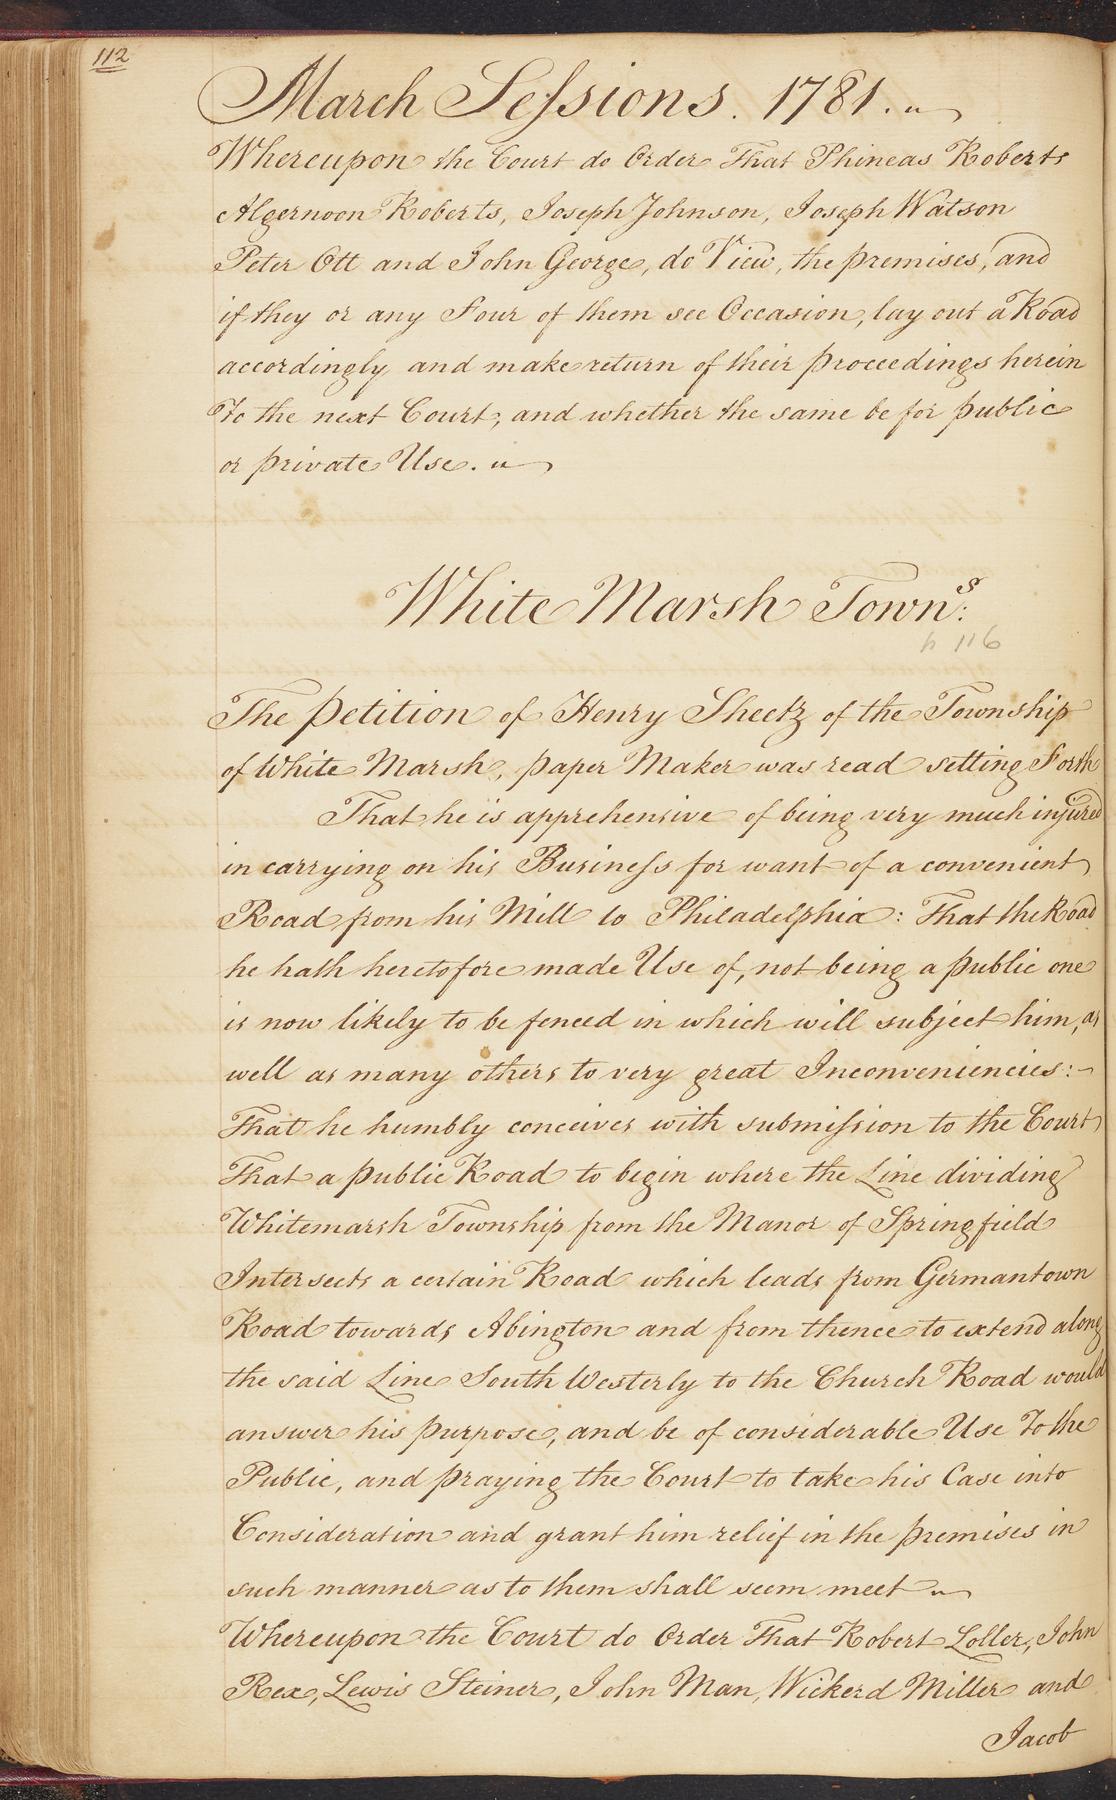 112
March Seſsions. 1781.
Whereupon the Court do Order That Phineas Roberts
Algernoon Roberts, Joseph Johnson, Joseph Watson
Peter Ott and John George, do View, the premises, and
if they or any Four of them see Occasion, lay out a Road
accordingly and make return of their proceedings herein
To the next Court; and whether the same be for public
or private Use.
White Marsh Town.s:
p 116
The Petition of Henry Sheetz of the Township
of White Marsh, paper Maker was read setting Forth
That he is apprehensive of being very much injured
in carrying on his Busineſs for want of a convenient
Road from his Mill to Philadelphia: That the Road
he hath heretofore made Use of, not being a public one
is now likely to be fenced in which will subject him, as
well as many others to very great Inconveniencies:-
That he humbly conceives with submiſsion to the Court
That a public Road to begin where the Line dividing
Whitemarsh Township from the Manor of Springfield
Intersects a certain Road which leads from Germantown
Road towards Abington and from thence to extend along
the said Line South Westerly to the Church Road would
answer his purpose, and be of considerable Use To the
Public, and praying the Court to take his Case into
Consideration and grant him relief in the premises in
such manner as to them shall seem meet
Whereupon the Court do Order That Robert Loller, John
Rex, Lewis Steiner, John Man, Wickerd Miller and
Jacob